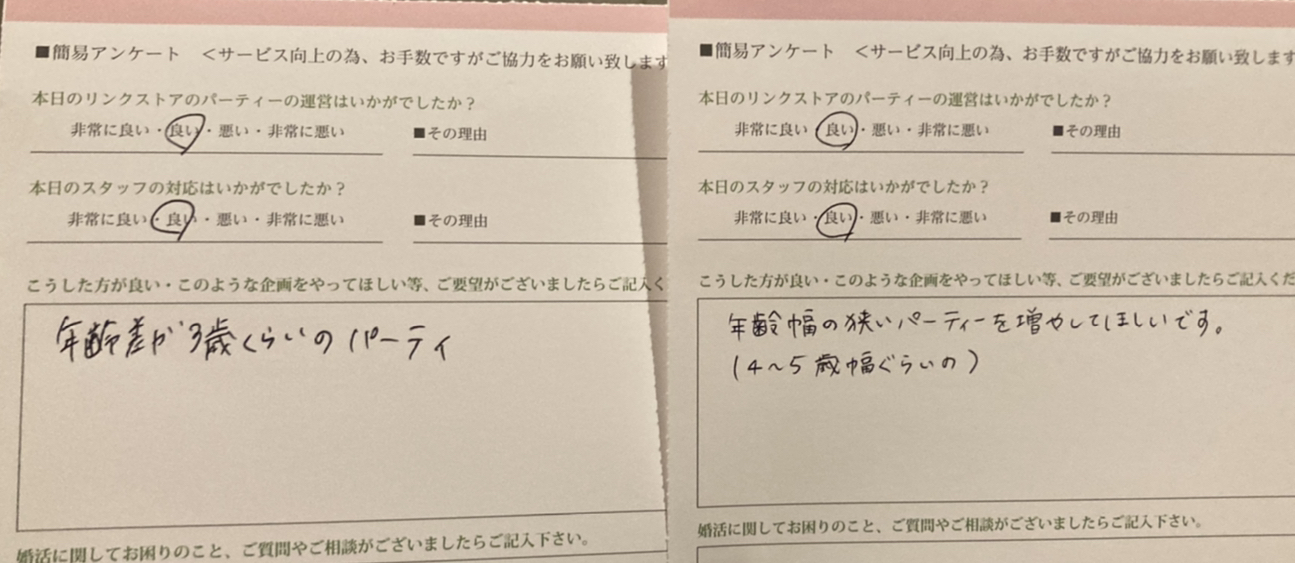 ■簡易アンケート <サービス向上の為、お手数ですがご協力をお願い致します
本日のリンクストアのパーティーの運営はいかがでしたか？
非常に良い・良い・悪い・非常に悪い ■その理由
本日のスタッフの対応はいかがでしたか？
非常に良い・良い・悪い・非常に悪い ■その理由
こうした方が良い・このような企画をやってほしい等、ご要望がございましたらご記入く
年齢差が3歳くらいのパーティ
婚活に関してお困りのこと、ご質問やご相談がございましたらご記入下さい。
■簡易アンケート <サービス向上の為、お手数ですがご協力をお願い致しま
本日のリンクストアのパーティーの運営はいかがでしたか？
非常に良い・良い・悪い・非常に悪い ■その理由
本日のスタッフの対応はいかがでしたか？
非常に良い・良い・悪い・非常に悪い ■その理由
こうした方が良い・このような企画をやってほしい等、ご要望がございましたらご記入くだ
年齢幅の狭いパーティーを増やしてほしいです。
(4～5歳幅ぐらいの)
婚活に関してお困りのこと、ご質問やご相談がございましたらご記入下さい。